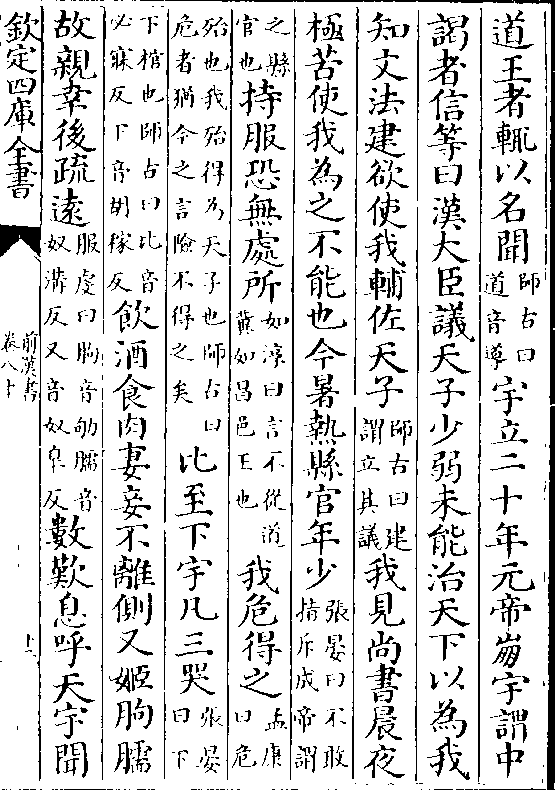 道王者輒以名聞師古曰道音導宇立二十年元帝崩宇謂中
謁者信等曰漢大臣議天子少弱未能治天下以為我
知文法建欲使我輔佐天子師古曰建謂立其議我見尚書晨夜
極苦使我為之不能也今暑熱縣官年少張晏曰不敢指斥成帝謂
之縣官也持服恐無處所如淳曰言不從道冀如昌邑王也我危得之孟康曰危
殆也我殆得為天子也師古曰危者猶今之言險不得之矣比至下宇凡三哭張晏曰下
下棺也師古曰比音必寐反下音胡稼反飲酒食肉妻妾不離側又姬朐臑
故親幸後疏逺服虔曰朐音劬臑音奴溝反又音奴皐反數歎息呼天宇聞
欽定四庫全書
前漢書
卷八十
十二